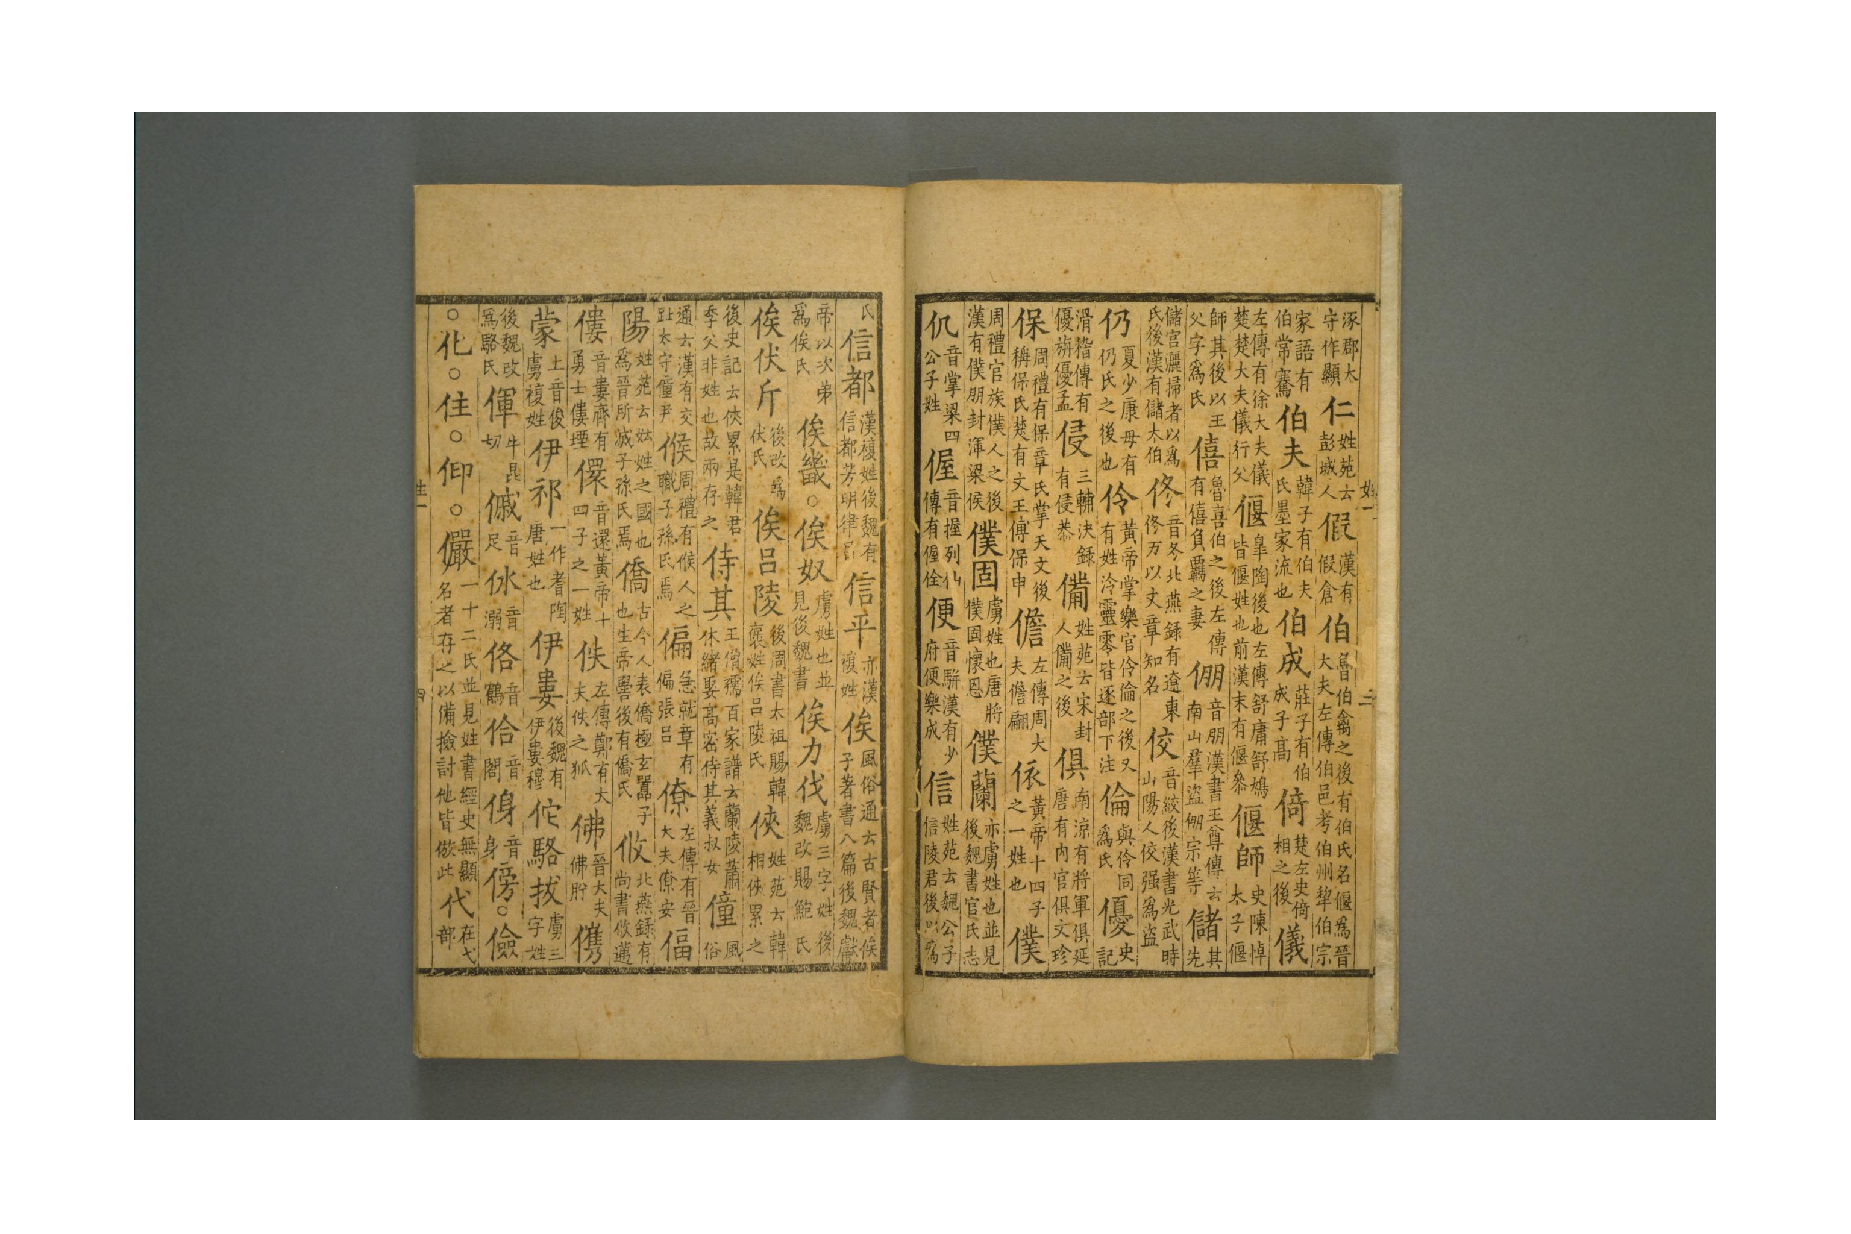 涿郡太守作顯仁姓苑云彭城人假漢有假倉伯魯伯禽之後有伯氏名偃為晉大夫左傳伯邑考伯州犂伯宗
家語有伯常騫伯夫韓子有伯夫氏墨家流也伯成莊子有伯成子高倚楚左史倚相之後儀
左傳有徐大夫儀楚楚大夫儀行父偃皐陶後也左傳舒庸舒鳩皆偃姓也前漢末有偃參偃師史陳悼太子偃
師其後以王父字為氏僖魯喜伯之後左傳有僖負羈之妻倗音朋漢書王尊傳云南山羣盜倗宗等儲其先
儲宫灑掃者以為氏後漢有儲太伯佟音冬北燕録有遼東佟万以文章知名佼音絞後漢書光武時山陽人佼强為盜
仍夏少康母有仍氏之後也伶黃帝掌樂官伶倫之後又有姓泠靈零皆逐部下注倫與伶同為氏優史記
滑稽傳有優旃優孟侵三輔決録有侵恭備姓苑云宋封人備之後俱南涼有將軍俱延唐有内官俱文珍
保周禮有保章氏掌天文後稱保氏楚有文王傅保申儋左傳周大夫儋翩依黃帝十四子之一姓也僕
周禮官族僕人之後漢有僕朋封渾梁侯僕固虜姓也唐將僕固懷恩僕蘭亦虜姓也並見後魏書官氏志
仉音掌梁四公子姓偓音握列仙傳有偓佺便音駢漢有少府便樂成信姓苑云魏公子信陵君後以為
氏信都漢複姓後魏有信都芳明律曆信平亦漢複姓俟風俗通云古賢者俟子著書八篇後魏獻
帝以次弟為俟氏俟畿○俟奴虜姓也並見後魏書俟力伐虜三字姓後魏改賜鮑氏
俟伏斤後改為伏氏俟呂陵後周書太祖賜韓褒姓俟呂陵氏俠姓苑云韓相俠累之
後史記云俠累是韓君季父非姓也故兩存之侍其王僧孺百家譜云蘭陵蕭休緒娶高密侍其義叔女僮風俗
通云漢有交趾太守僮尹候周禮有候人之職子孫氏焉偏急就章有偏張呂僚左傳有晉大夫僚安偪
陽姓苑云妘姓之國也為晉所滅子孫氏焉僑古今人表僑極玄囂子也生帝嚳後有僑氏攸北燕録有尚書攸邁
僂音婁齊有勇士僂堙儇音還黃帝十四子之一姓佚左傳鄭有大夫佚之狐佛晉大夫佛肸㑺
蒙土音俊虜複姓伊祁一作耆陶唐姓也伊婁後魏有伊婁穆佗駱拔虜三字姓
後魏改為駱氏㑮牛昆切傶音足㲻音溺佫音鶴佮音閤㑗音身傍○儉
○化○住○仰○儼一十二氏並見姓書經史無顯名者存之以備撿討他皆倣此代在弋部
姓一
二
四